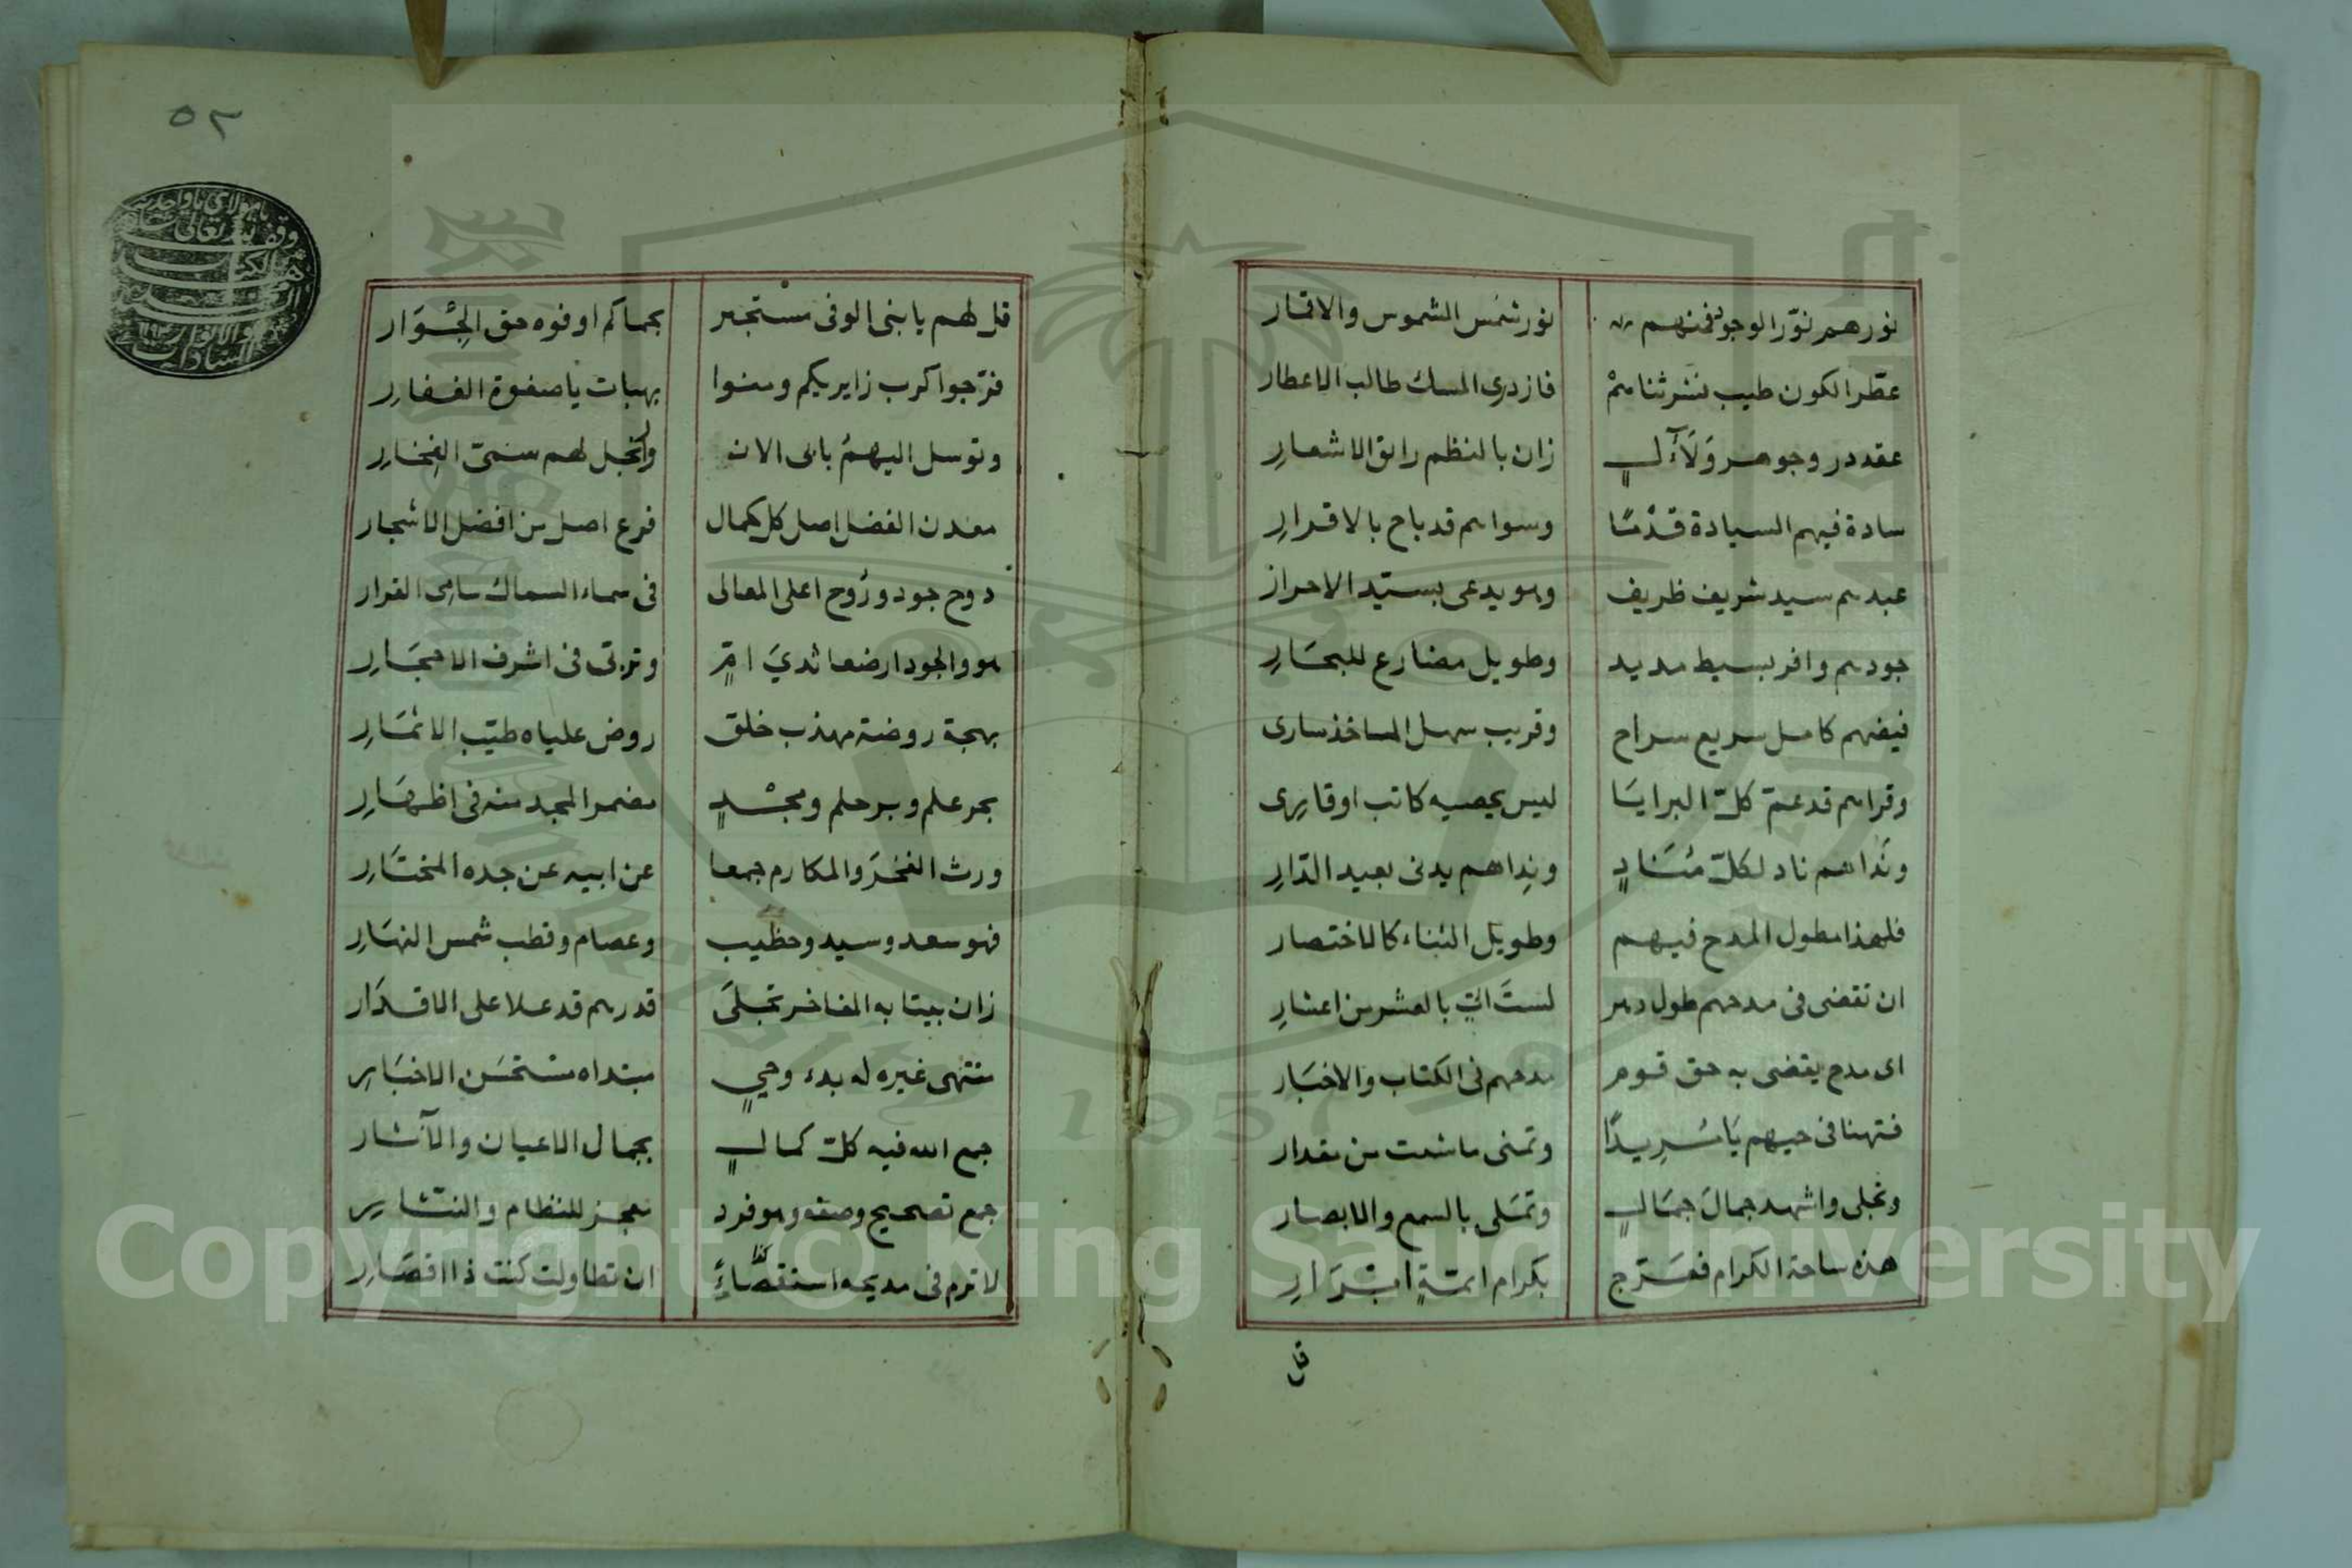 نورهم نوّر الوجود فمنهم نور شمس الشموس والاقمار
عطّر الكون طيب نشر ثناهم فازدرى المسك طالب الاعطار
عقد در وجوهر وَلَآلٍ زان بالنظم رائق الاشعارِ
سادة فيهم السيادة قدْمًا وسواهم قد باح بالاقرارِ
عبدهم سيد شريف ظريف وهو يدعى بسيّد الاحرار
جودهم وافر بسيط مديد وطويل مضارع للبحَارِ
فيضهم كامل سريع سراح وقريب سهل المآخذ سارى
وقراهم قد عمّ كلّ البرايَا ليس يحصيه كاتب او قارِى
ونَداهم ناد لكلّ مُنَادٍ ونِداهم يدنى بعيد الدّارِ
فلهذا مطول المدح فيهم وطويل الثناء كالاختصار
ان تقضى فى مدحهم طول دهر لستَ اتٍ بالعشر من اعشارِ
اى مدح يقضى به حق قوم مدحهم فى الكتاب والاخبَار
فتهنا فى حيهم يَا مُرِيدًا وتمنى ما شئت من مقدار
وتجلى واشهد جمالَ جمَالٍ وتمَلى بالسمع والابصار
هذه ساحة الكرام فعَرّج بكرام ائمةٍ ابْرَارِ
قل
٥٢
قل لهم يا بنى الوفى مستجير بحماكم اوفوه حق الجِوَار
فرّجوا كرب زايريكم ومنوا بهبات يا صفوة الغفارِ
وتوسل اليهمُ بابى الان وانجل لهم سمىّ الفخارِ
معدن الفضل اصل كل كمال فرع اصل من افضل الاشجار
دوح جود ورُوح اعلى المعالى فى سماء السماك سامى القرار
هو والجود ارضعا ثديَ امٍّ وتربى فى اشرف الاحجَارِ
بهجة روضة مهذب خلق روض علياه طيّب الاثمَارِ
بحر علم وبر حلم ومجْدٍ مضمر المجد منه فى اظهَارِ
ورث الفخرَ والمكارم جمعا عن ابيه عن جده المختَارِ
فهو سعد وسيد وخطيب وعصام وقطب شمس النهَارِ
زان بيتا به المفاخر تجلَى قدرهم قد علا على الاقدَار
منتهى غيره له بدء وحيٍ مبتداه مستحسَن الاخبَارِ
جمع الله فيه كلّ كمالٍ بجمال الاعيان والآثار
جمع تصحيح وصفه وهو فرد معجز للنظام والنثّارِ
لا ترم فى مديحه استقصَاءً كذا ان تطاولت كنت ذا اقصَارِ